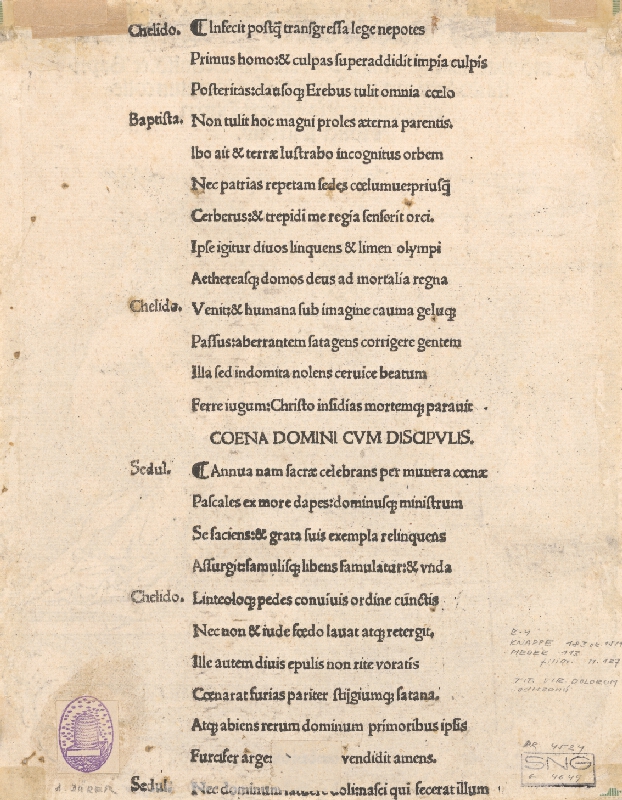 Chelido. ¶ Infecit postꝗ̃ transgressa lege nepotes
Primus homo:& culpas superaddidit impia culpis
Posteritas:clausoqꝫ Erebus tulit omnia cœlo
Baptista. Non tulit hoc magni proles æterna parentis.
Ibo ait & terræ lustrabo incognitus orbem
Nec patrias repetam sedes cœlumue:priusꝗ̃
Cerberus:& trepidi me regia senserit orci.
Ipse igitur diuos linquens & limen olympi
Aethereasqꝫ domos deus ad mortalia regna
Chelido. Venit:& humana sub imagine cauma geluqꝫ
Passus:aberrantem satagens corrigere gentem
Illa sed indomita nolens ceruice beatum
Ferre iugum:Christo insidias mortemqꝫ parauit.
COENA DOMINI CVM DISCIPVLIS.
Sedul. ¶ Annua nam sacræ celebrans per munera cœnæ
Pascales ex more dapes:dominusqꝫ ministrum
Se faciens:& grata suis exempla relinquens
Assurgit:famulisqꝫ libens famulatur:& vnda
Chelido. Linteoloqꝫ pedes conuiuis ordine cūnctis
Nec non & iude fœdo lauat atqꝫ retergit.
Ille autem diuis epulis non rite voratis
Cœnarat furias pariter stĳgiumqꝫ satana.
Atqꝫ abiens rerum dominum primoribus ipsis
Furcifer vendidit amens.
Sedul. Nec dominum qui fecerat illum
KNAPPE
MEDER 113
A. DÜRER
SNG